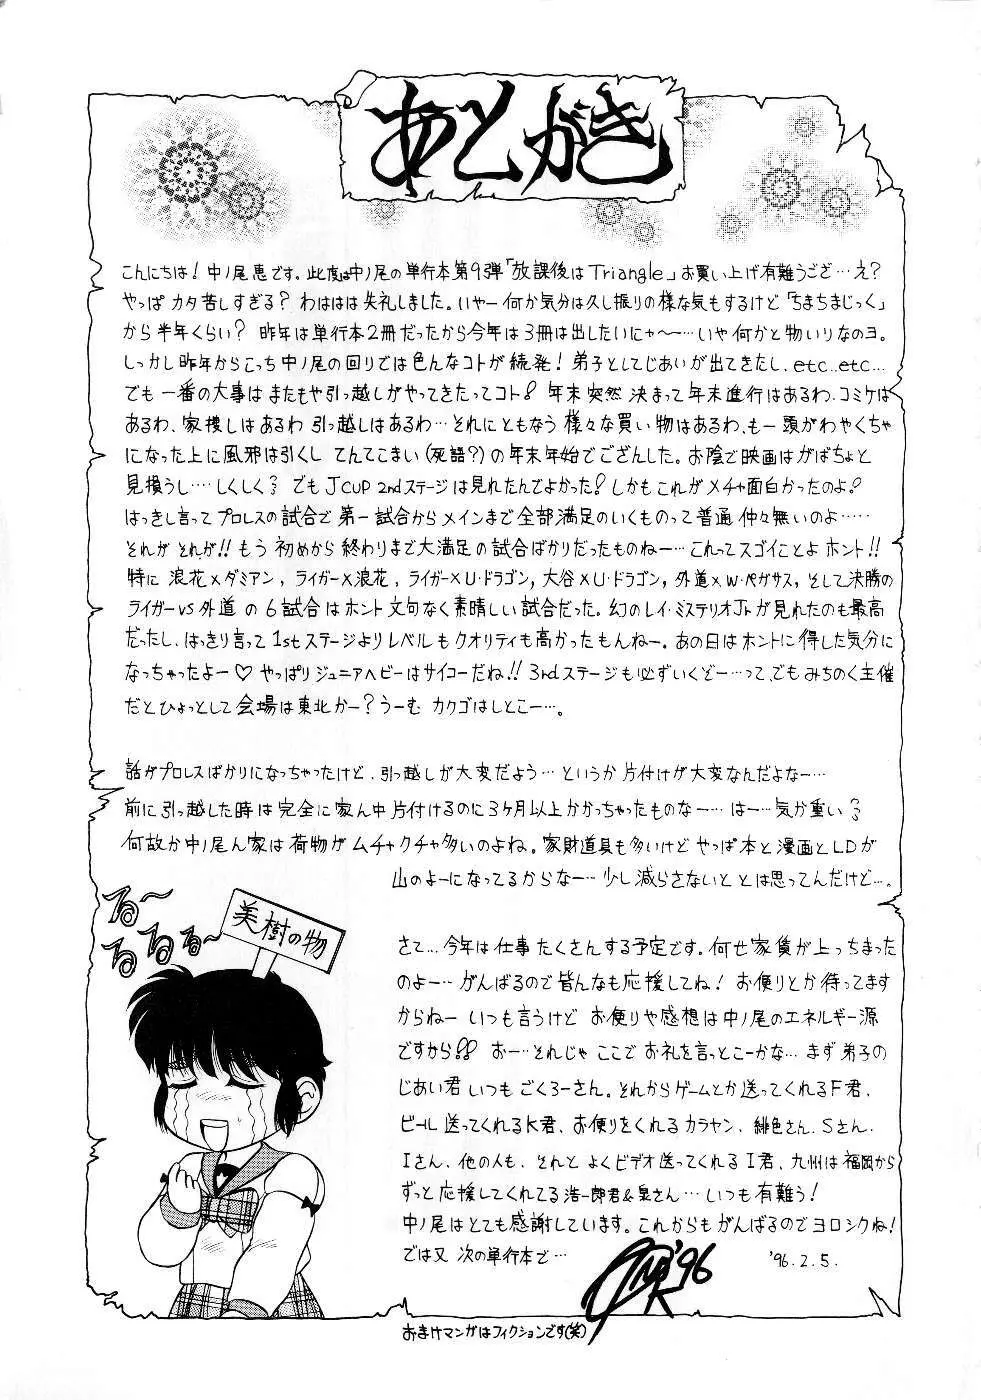 あとがき
こんにちは! 中ノ尾恵です。此度は中ノ尾の単行本第9弾「放課後はTriangle」お買い上げ有難うござ…え?
やっぱ カタ苦しすぎる? わははは失礼しました。いやー何か気分は久し振りの様な気もするけど「ちまちまじっく」
から半年くらい? 昨年は単行本2冊だったから今年は3冊は出したいにゃ〜…いや何かと物いりなのヨ。
しっかし昨年からこっち中ノ尾の回りでは色んなコトが続発! 弟子としてじあいが出てきたし、etc..etc…
でも一番の大事はまたもや引っ越しがやってきたってコト! 年末突然決まって年末進行はあるわ、コミケは
あるわ、家捜しはあるわ引っ越しはあるわ…それにともなう様々な買い物はあるわ、も一頭がわやくちゃ
になった上に風邪は引くし てんてこまい(死語?)の年末年始でござんした。お陰で映画はがばちょと
見損うし…しくしく でもJCUP 2ndステージは見れたんでよかった! しかもこれがメチャ面白かったのよ!
はっきし言ってプロレスの試合で第一試合からメインまで全部満足のいくものって普通仲々無いのよ……
それが それが!! もう初めから終わりまで大満足の試合ばかりだったものねー…これってスゴイことよホント!!
特に浪花×ダミアン, ライガー×浪花, ライガー×U・ドラゴン, 大谷×U・ドラゴン, 外道×W・ペガサス, そして決勝の
ライガーvs外道の6試合はホント文句なく素晴しい試合だった。幻のレイ・ミステリオJrが見れたのも最高
だったし、はっきり言って1stステージよりレベルもクオリティも高かったもんねー。あの日はホントに得した気分に
なっちゃったよー♡ やっぱりジュニアヘビーはサイコーだね!! 3rdステージも必ずいくぞー…って、でもみちのく主催
だとひょっとして会場は東北かー? うーむ カクゴはしとこー…。
話がプロレスばかりになっちゃったけど、引っ越しが大変だよう…というか片付けが大変なんだよなー…
前に引っ越した時は完全に家ん中片付けるのに3ヶ月以上かかっちゃったものなー…はー…気が重い
何故か中ノ尾ん家は荷物がムチャクチャ多いのよね。家財道具も多いけどやっぱ本と漫画とLDが
山のよーになってるからなー…少し減らさないと とは思ってんだけど…。
る〜
るるる〜
美樹の物
さて…今年は仕事たくさんする予定です。何せ家賃が上っちまった
のよー…がんばるので皆んなも応援してね! お便りとか待ってます
からねー いつも言うけど お便りや感想は中ノ尾のエネルギー源
ですから!! おー…それじゃここでお礼を言っとこーかな…まず弟子の
じあい君いつもごくろーさん。それからゲームとか送ってくれるF君、
ビール送ってくれるK君、お便りをくれるカラヤン、緋色さん、Sさん、
Iさん、他の人も、それと よくビデオ送ってくれるI君、九州は福岡から
ずっと応援してくれてる浩一郎君&泉さん…いつも有難う!
中ノ尾はとても感謝しています。これからもがんばるのでヨロシクね!
では又 次の単行本で…
'96
'96.2.5.
おまけマンガはフィクションです(笑)